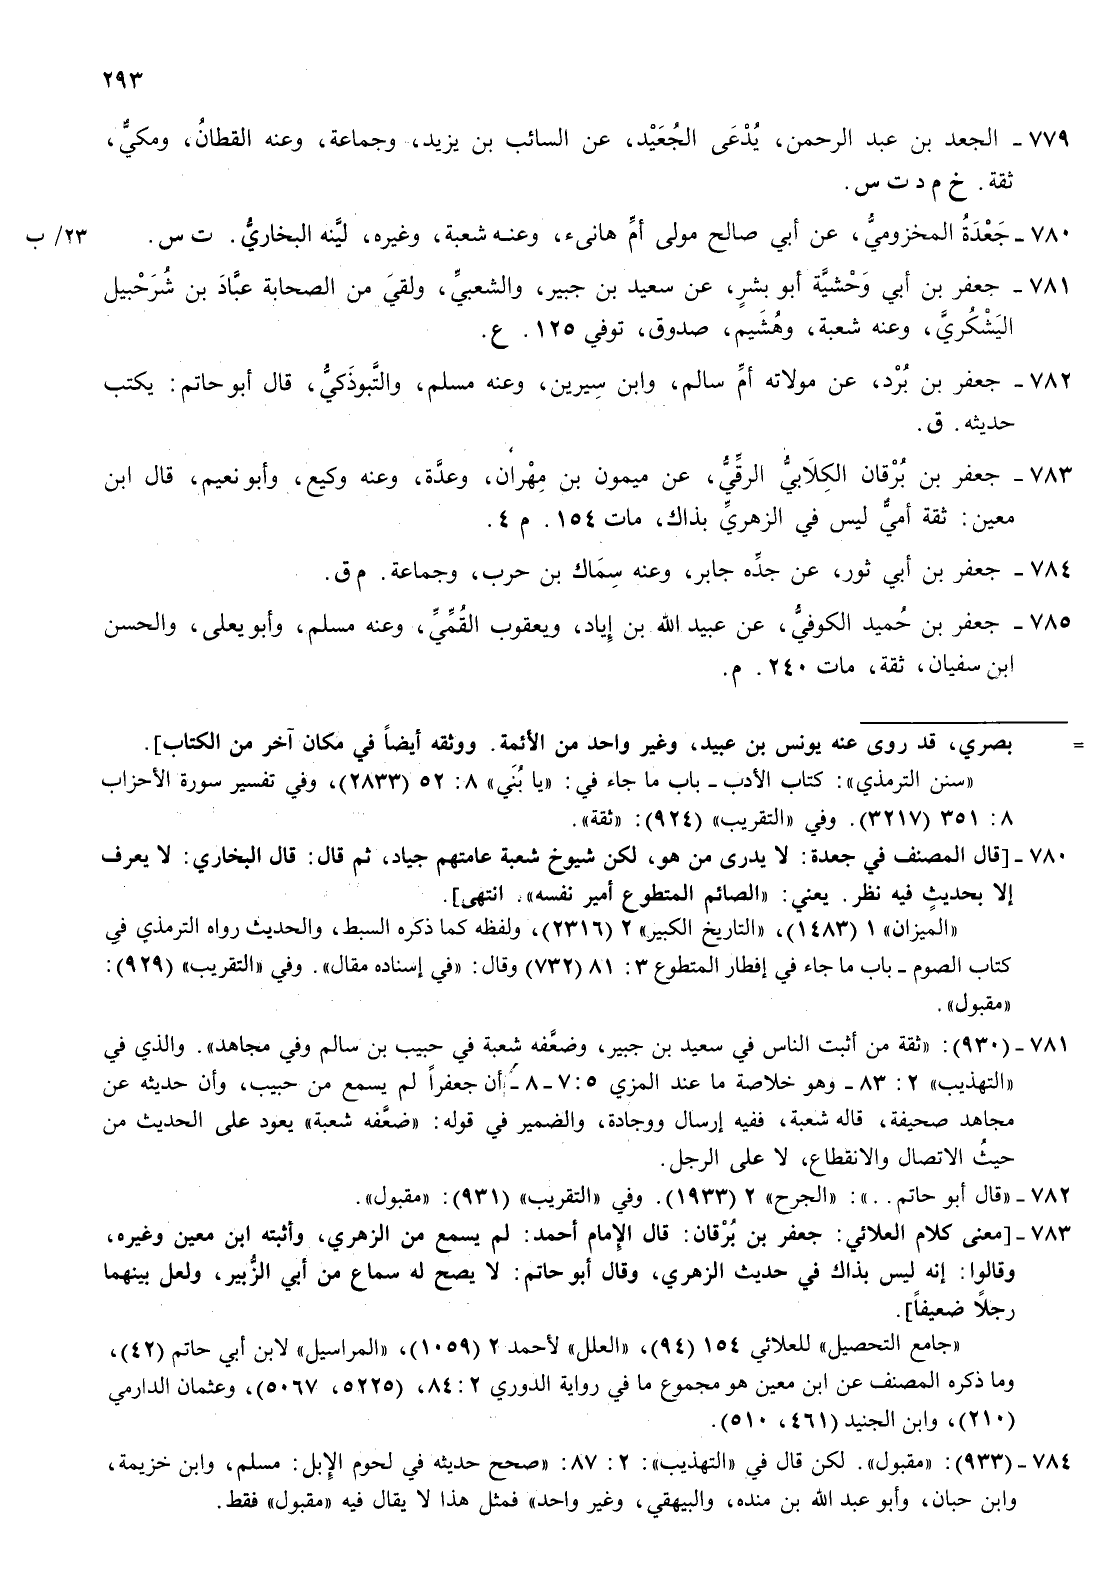 ٢٩٣
٧٧٩ ـ الجعد بن عبد الرحمن، يُدْعَى الجُعَيْد، عن السائب بن يزيد، وجماعة، وعنه القطانُ، ومكيٌّ،
ثقة. خ م د ت س.
٧٨٠ ـ جَعْدَةُ المخزوميُّ، عن أبي صالح مولى أمِّ هانىء، وعنه شعبة، وغيره، ليَّنه البخاريُّ. ت س. ٢٣/ ب
٧٨١ ـ جعفر بن أبي وَحْشيَّة أبو بشرٍ، عن سعيد بن جبير، والشعبيِّ، ولقيَ من الصحابة عبَّادَ بن شُرَحْبيل
اليَشْكُريَّ، وعنه شعبة، وهُشَيم، صدوق، توفي ١٢٥. ع.
٧٨٢ ـ جعفر بن بُرْد، عن مولاته أمِّ سالم، وابن سِيرين، وعنه مسلم، والتَّبوذَكيُّ، قال أبو حاتم: يكتب
حديثه. ق.
٧٨٣ ـ جعفر بن بُرْقان الكِلَابيُّ الرقِّيُّ، عن ميمون بن مِهْران، وعدَّة، وعنه وكيع، وأبو نعيم، قال ابن
معين: ثقة أميٌّ ليس في الزهريِّ بذاك، مات ١٥٤. م ٤.
٧٨٤ ـ جعفر بن أبي ثور، عن جدِّه جابر، وعنه سِمَاك بن حرب، وجماعة. م ق.
٧٨٥ ـ جعفر بن حُميد الكوفيُّ، عن عبيد الله بن إياد، ويعقوب القُمِّيِّ، وعنه مسلم، وأبو يعلى، والحسن
ابن سفيان، ثقة، مات ٢٤٠. م.
= بصري، قد روى عنه يونس بن عبيد، وغير واحد من الأئمة. ووثقه أيضاً في مكان آخر من الكتاب].
«سنن الترمذي»: كتاب الأدب ـ باب ما جاء في: «يا بُنَي» ٨: ٥٢ (٢٨٣٣)، وفي تفسير سورة الأحزاب
٨: ٣٥١ (٣٢١٧). وفي «التقريب» (٩٢٤): «ثقة».
٧٨٠ ـ [قال المصنف في جعدة: لا يدرى من هو، لكن شيوخ شعبة عامتهم جياد، ثم قال: قال البخاري: لا يعرف
إلا بحديثٍ فيه نظر. يعني: «الصائم المتطوع أمير نفسه». انتهى].
«الميزان» ١ (١٤٨٣)، «التاريخ الكبير» ٢ (٢٣١٦)، ولفظه كما ذكره السبط، والحديث رواه الترمذي في
كتاب الصوم ـ باب ما جاء في إفطار المتطوع ٣: ٨١ (٧٣٢) وقال: «في إسناده مقال». وفي «التقريب» (٩٢٩):
«مقبول».
٧٨١ ـ (٩٣٠): «ثقة من أثبت الناس في سعيد بن جبير، وضعَّفه شعبة في حبيب بن سالم وفي مجاهد». والذي في
«التهذيب» ٢: ٨٣ ـ وهو خلاصة ما عند المزي ٥: ٧ـ٨ ـ أن جعفراً لم يسمع من حبيب، وأن حديثه عن
مجاهد صحيفة، قاله شعبة، ففيه إرسال ووجادة، والضمير في قوله: «ضعَّفه شعبة» يعود على الحديث من
حيثُ الاتصال والانقطاع، لا على الرجل.
٧٨٢ ـ «قال أبو حاتم..»: «الجرح» ٢ (١٩٣٣). وفي «التقريب» (٩٣١): «مقبول».
٧٨٣ ـ [معنى كلام العلائي: جعفر بن بُرْقان: قال الإمام أحمد: لم يسمع من الزهري، وأثبته ابن معين وغيره،
وقالوا: إنه ليس بذاك في حديث الزهري، وقال أبو حاتم: لا يصح له سماع من أبي الزُّبير، ولعل بينهما
رجلًا ضعيفاً].
«جامع التحصيل» للعلائي ١٥٤ (٩٤)، «العلل» لأحمد ٢ (١٠٥٩)، «المراسيل» لابن أبي حاتم (٤٢)،
وما ذكره المصنف عن ابن معين هو مجموع ما في رواية الدوري ٢: ٨٤، (٥٢٢٥، ٥٠٦٧)، وعثمان الدارمي
(٢١٠)، وابن الجنيد (٤٦١، ٥١٠).
٧٨٤ ـ (٩٣٣): «مقبول». لكن قال في «التهذيب»: ٢: ٨٧: «صحح حديثه في لحوم الإبل: مسلم، وابن خزيمة،
وابن حبان، وأبو عبد الله بن منده، والبيهقي، وغير واحد» فمثل هذا لا يقال فيه «مقبول» فقط.